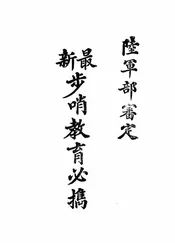 陸軍部審定
最新步哨教育必攜